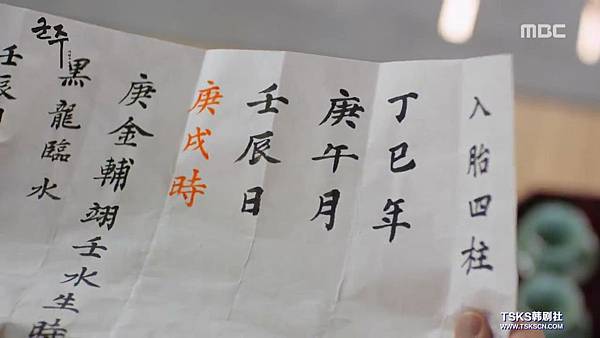 군주
MBC
入胎四柱
丁巳年
庚午月
壬辰日
庚戌時
庚金輔翊壬水生時
黑龍臨水
壬辰
TSKS韩剧社
WWW.TSKSCN.COM